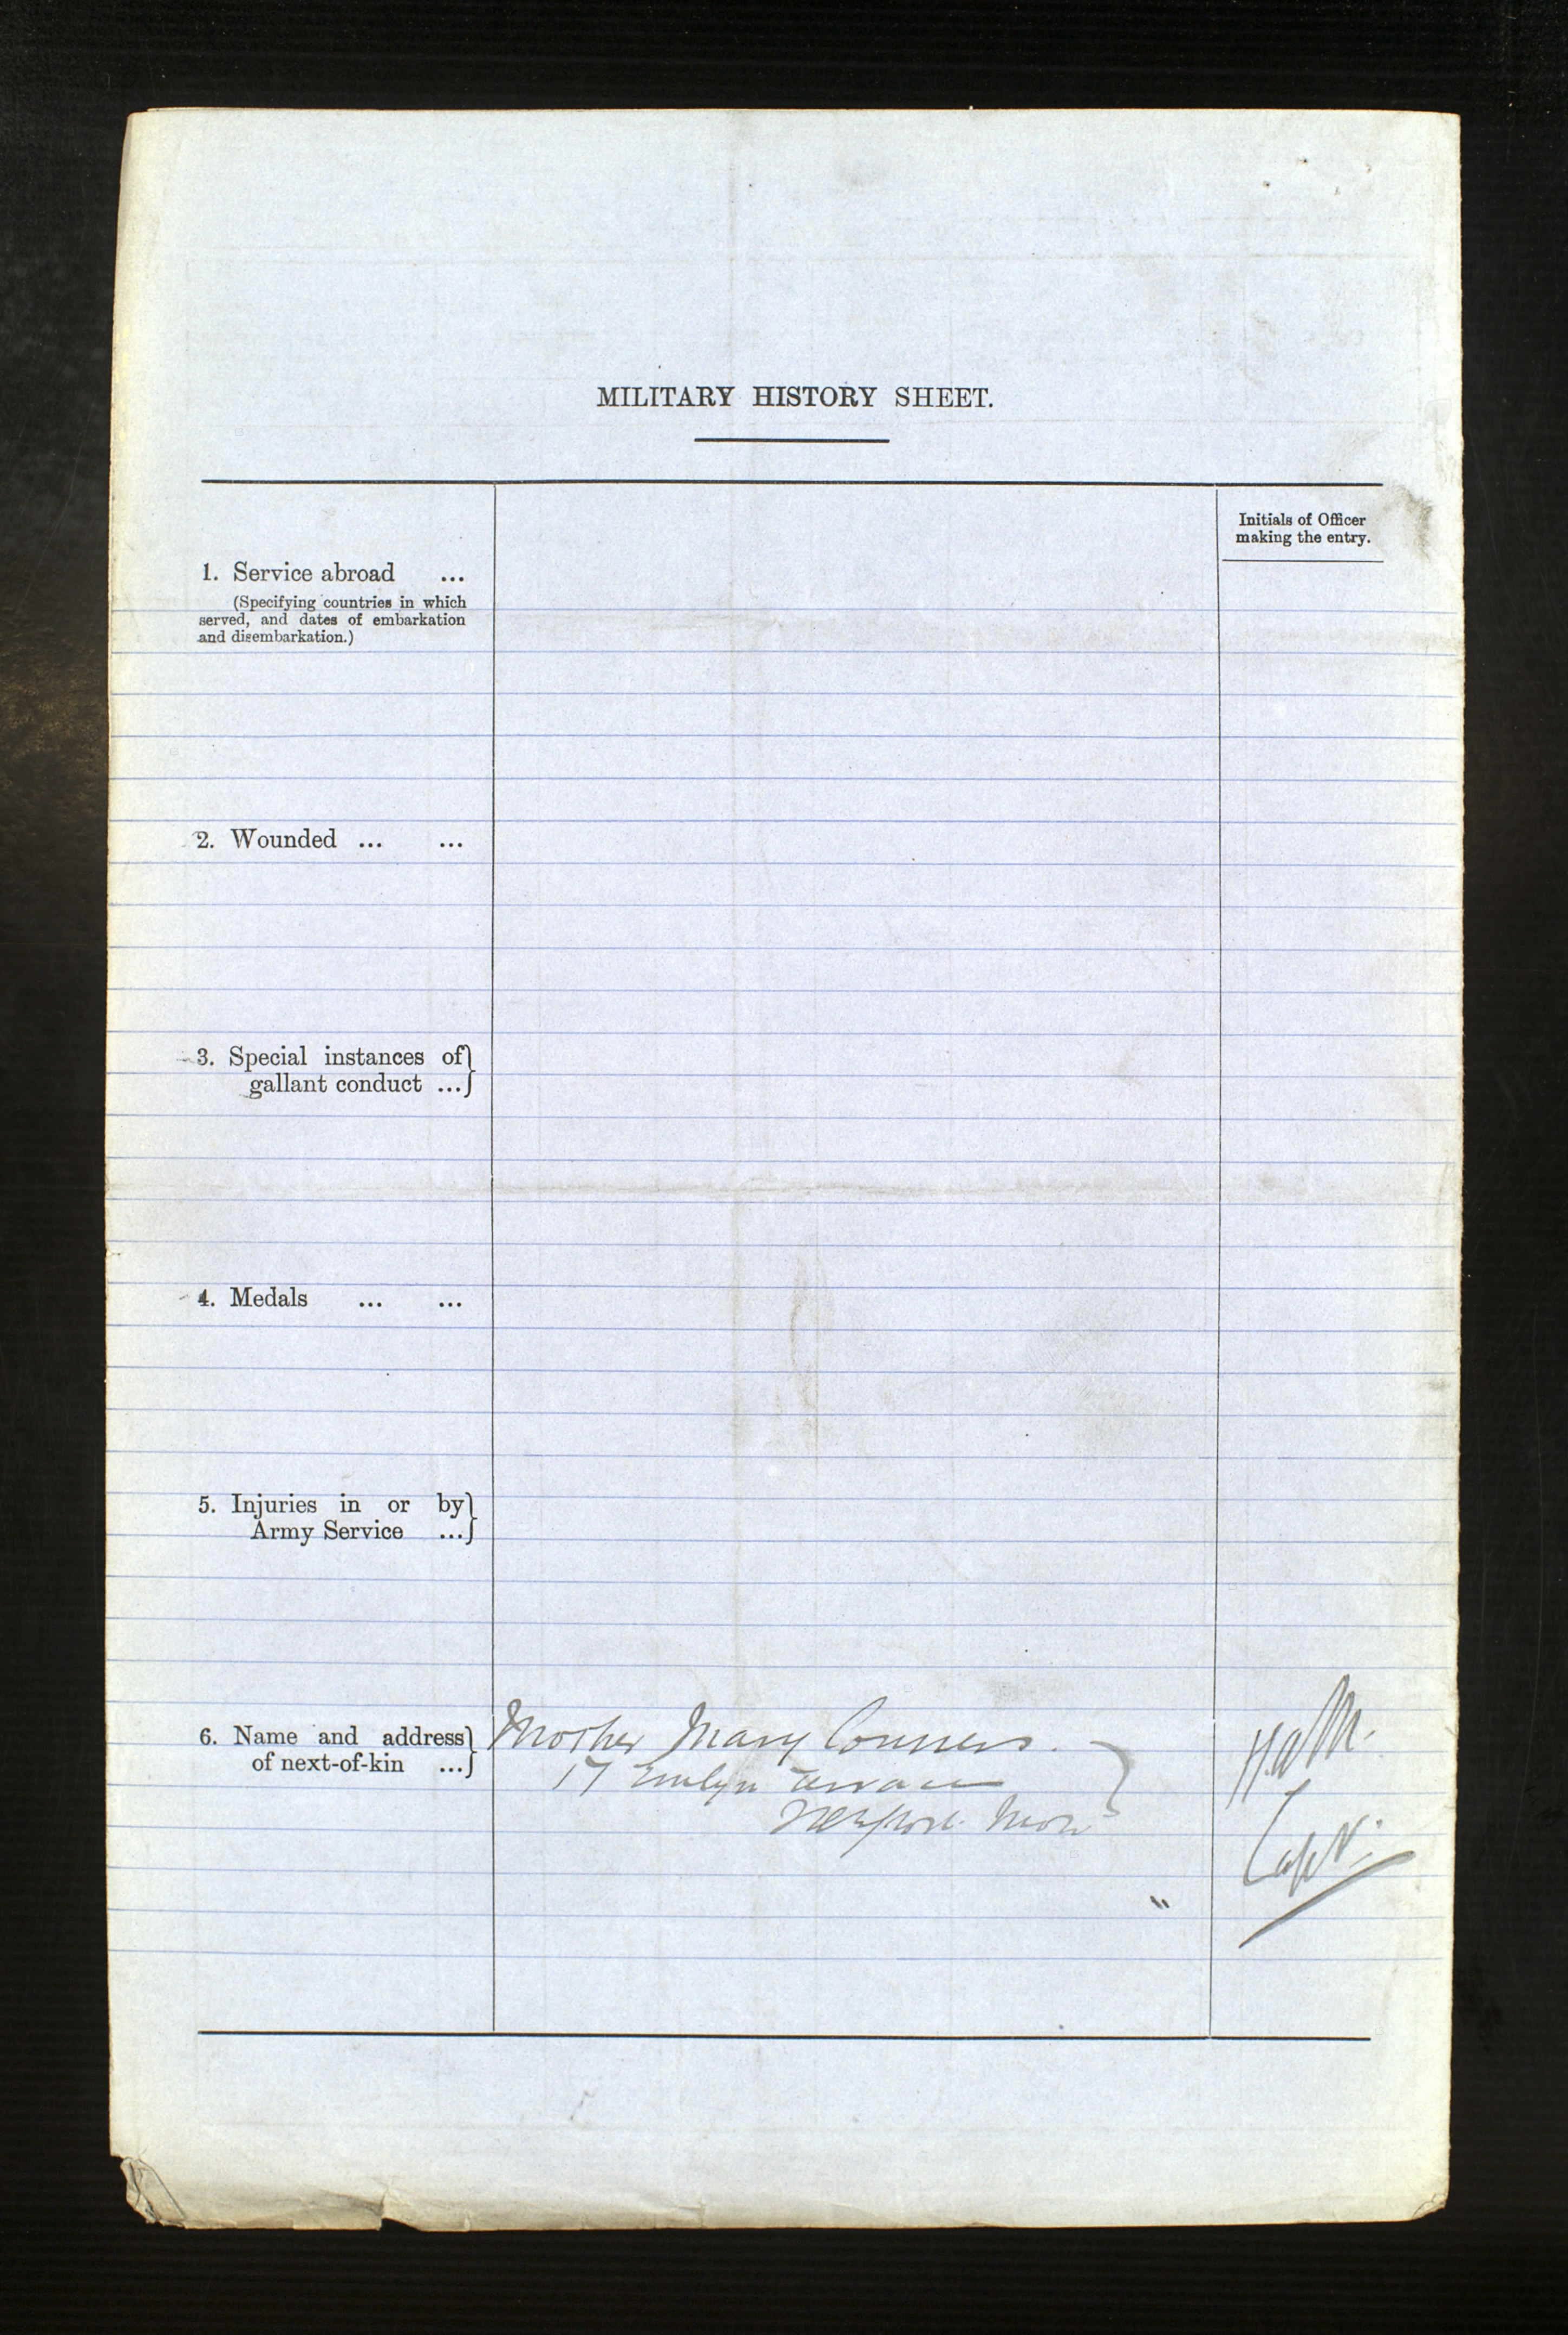 MILITARY HISTORY SHEET.
Initials of Officer
making the entry.
1. Service abroad ...
(Specifying countries in which
served, and dates of embarkation
and disembarkation.)
2. Wounded ... ...
3. Special instances of
gallant conduct ...
4. Medals ... ...
5. Injuries in or by
Army Service ...
6. Name and address
of next-of-kin ...
Mother Mary Conners.
17 Emlyn Terrace
Newport Mon
Capt.